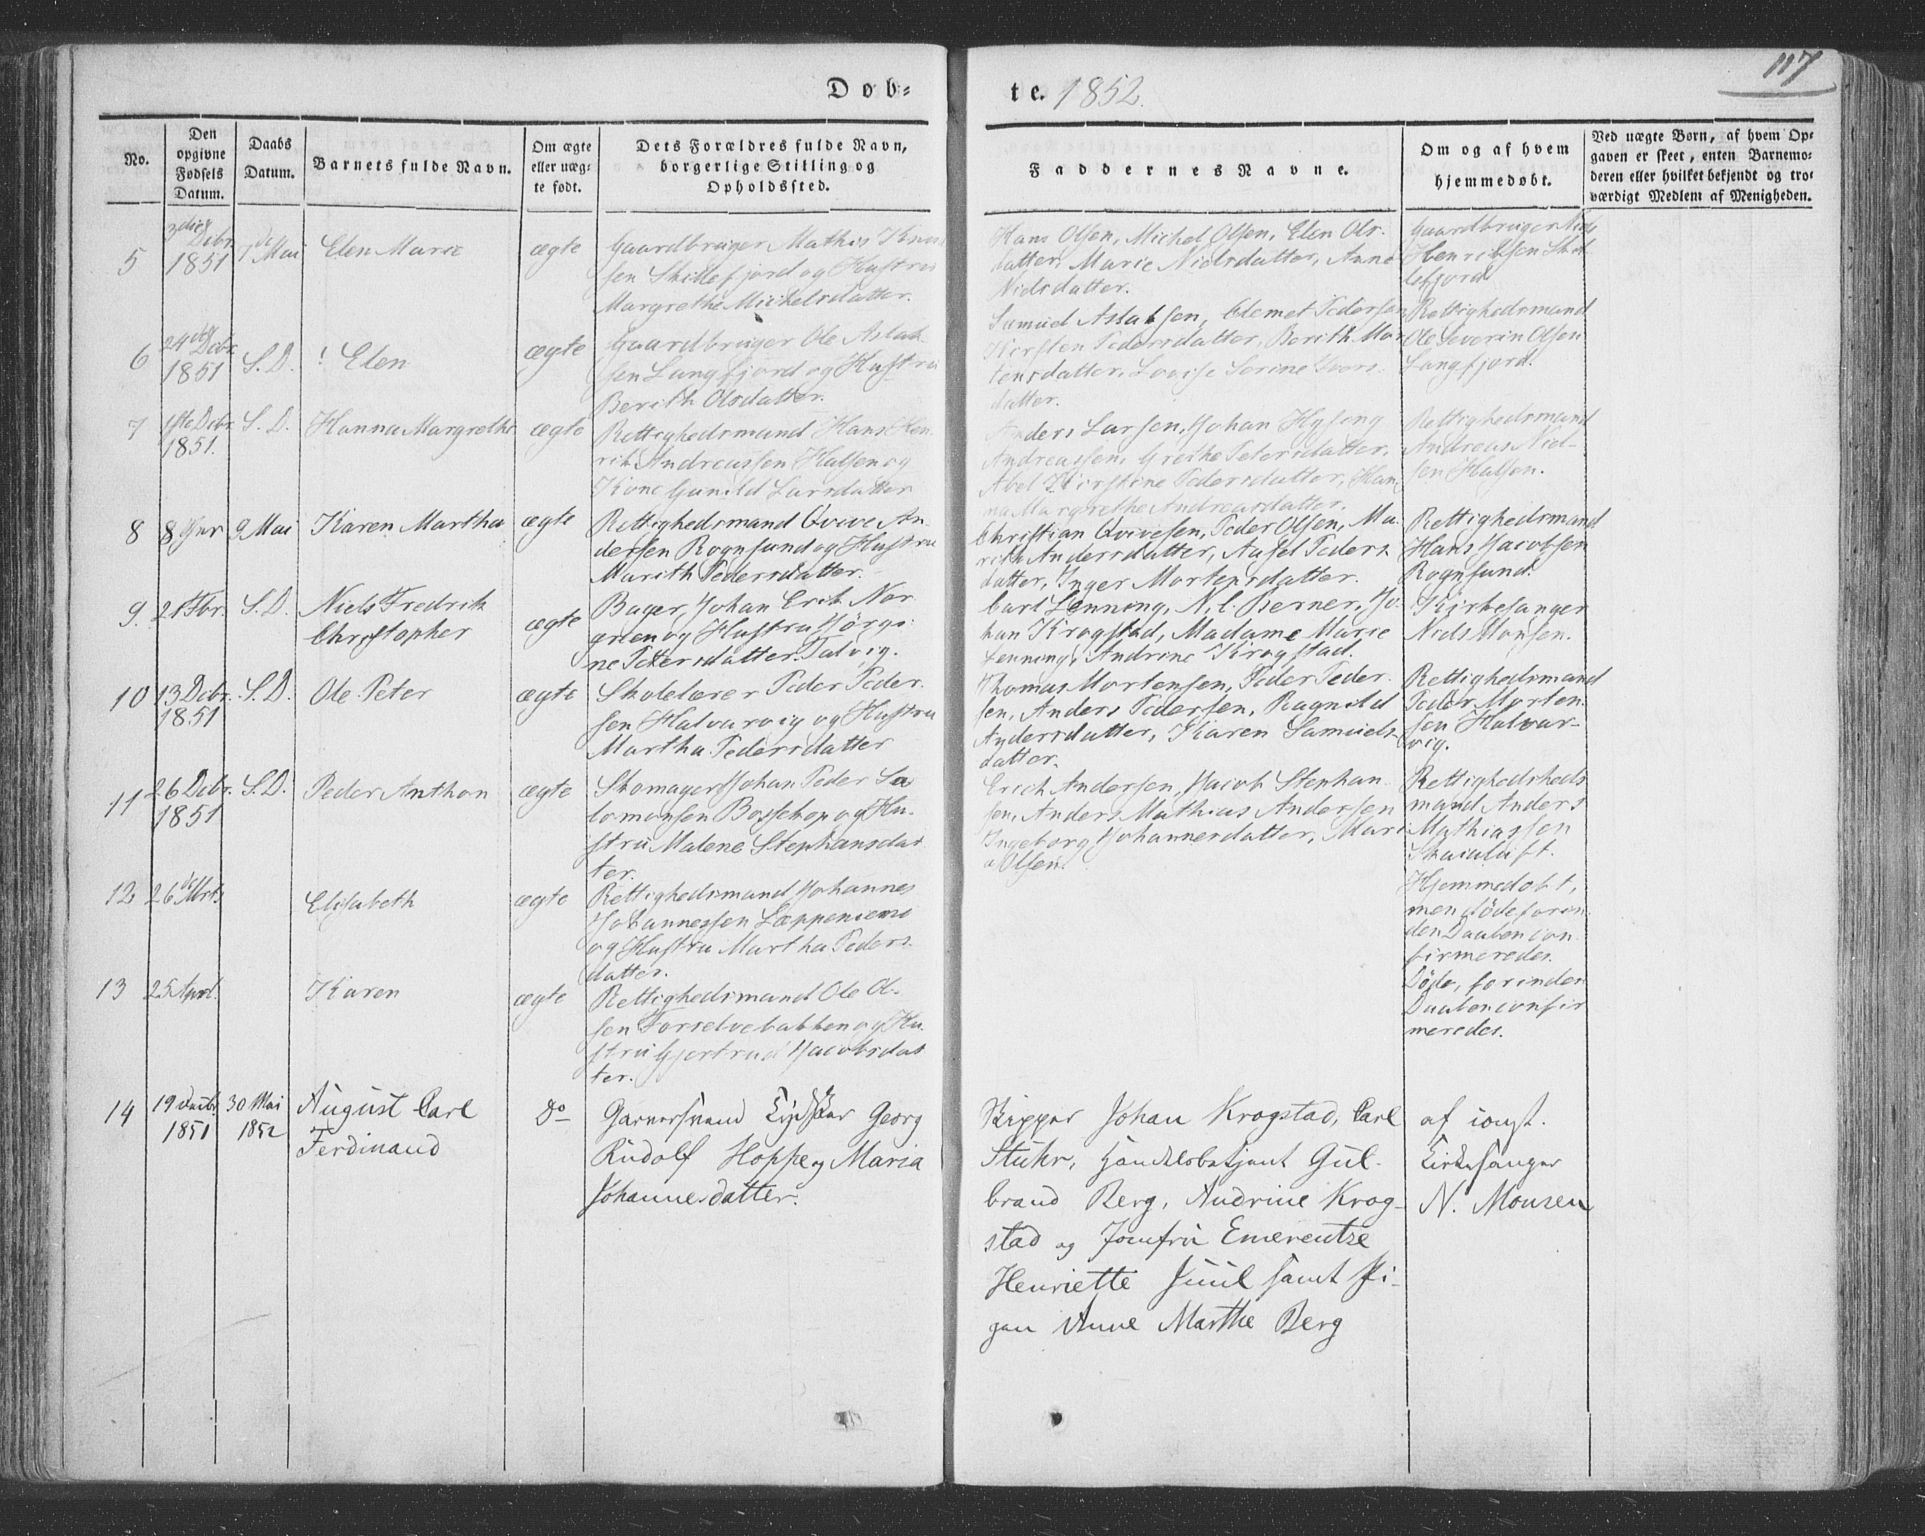 117
Døb-
te. 1852.
No.
Den opgivne Fødsels Datum.
Daabs Datum.
Barnets fulde Navn.
Om ægte eller uægte født.
Dets Forældres fulde Navn, borgerlige Stilling og Opholdssted.
Faddernes Navne.
Om og af hvem hjemmedøbt.
Ved uægte Børn, af hvem Opgaven er skeet, enten Barnemoderen eller hvilket bekjendt og troværdigt Medlem af Menigheden.
5
3die Debr. 1851
7de Mai
Elen Marie
ægte
Gaardbruger Mathis
sen Skillefjord og Hustru
Margrethe Michelsdatter.
Hans Olsen, Michel Olsen, Elen Ols-
datter, Marie Nielsdatter, Anne
Nielsdatter.
Gaardbruger Niels
Henriksen Skil-
lefjord
6
24de Debr. 1851
S. D.
! Elen
ægte
Gaardbruger Ole Aslak-
sen Langfjord og Hustru
Berith Olsdatter.
Samuel Aslaksen, Clemet Pedersen
Kirsten Pedersdatter, Berith Mor-
tensdatter, Lovise Sorine Ivers-
datter.
Rettighedsmand
Ole Severin Olsen
Langfjord.
7
1ste Debr. 1851.
S. D.
Hanna Margrethe
ægte
Rettighedsmand Hans Hen-
rik Andreassen Halsen og
Kone Gunild Larsdatter
Anders Larsen, Johan
Andreassen, Grethe Petersdatter,
Abel Kirstine Pedersdatter, Han-
na Margrethe Andreasdatter.
Rettighedsmand
Andreas Niel-
sen Halsen.
8
8 Jnr
9 Mai
Karen Martha
ægte
Rettighedsmand Qvive An-
dersen Rognsund og Hustru
Marith Pedersdatter.
Christian Qvivesen, Peder Olsen, Ma-
rith Andersdatter, Aksel Peders-
datter, Inger Mortensdatter.
Rettighedsmand
Hans Jacobsen
Rognsund.
9.
21 Fbr.
S. D.
Niels Fredrik
Christopher
ægte
Bager, Johan Erik Nor-
grien og Hustru Jørgi-
ne Petersdatter Talvig.
Carl Lenning, N. C. Berner, Jo-
han Krogstad, Madame Marie
Lenning, Andrine Krogstad.
Kirkesanger
Niels Monsen.
10
13 Debr. 1851
S. D.
Ole Peter
ægte
Skolelærer Peder Peder-
sen Halvarvig og Hustru
Martha Pedersdatter
Thomas Mortensen, Peder Peder-
sen, Anders Pedersen, Ragnild
Andersdatter, Karen Samuels-
datter.
Rettighedsmand
Peder Morten-
sen Halvar-
vig.
11
26 Debr. 1851
S. D.
Peder Anthon
ægte
Skomager Johan Peder Sa-
lomonsen Bossekop og Hu-
stru Malene Stephansdat-
ter.
Erich Andersen, Jacob Stephan-
sen, Anders Mathias Andersen
Ingeborg Johannesdatter, Mari-
a Olsen.
Rettigheds
mand Anders
Mathiassen
12
26de Mrts
Elisabeth
ægte
Rettighedsmand Johannes
Johannessen Leppeniemi
og Hustru Martha Peders-
datter.
Hjemmedøbt,
men døde foren-
den Daaben con-
firmeredes.
13
25 April.
Karen
ægte
Rettighedsmand Ole Ol-
sen Forselvebakken og Hu-
stru Gjertrud Jacobsdat-
ter.
Døde, forinden
Daaben confir
meredes.
14
19 Decbr 1851
30 Mai 1852
August Carl
Ferdinand
Do
Garversvend Georg
Rudolf Hoppe og Maria
Johannesdatter.
Skipper Johan Krogstad, Carl
Stuhr, Handelsbetjent Gul-
brand Berg, Andrine Krog-
stad og Jomfru Emerentze
Henriette Juul samt Pi-
gen Anne Marthe Berg
af const.
Kirkesanger
N. Monsen